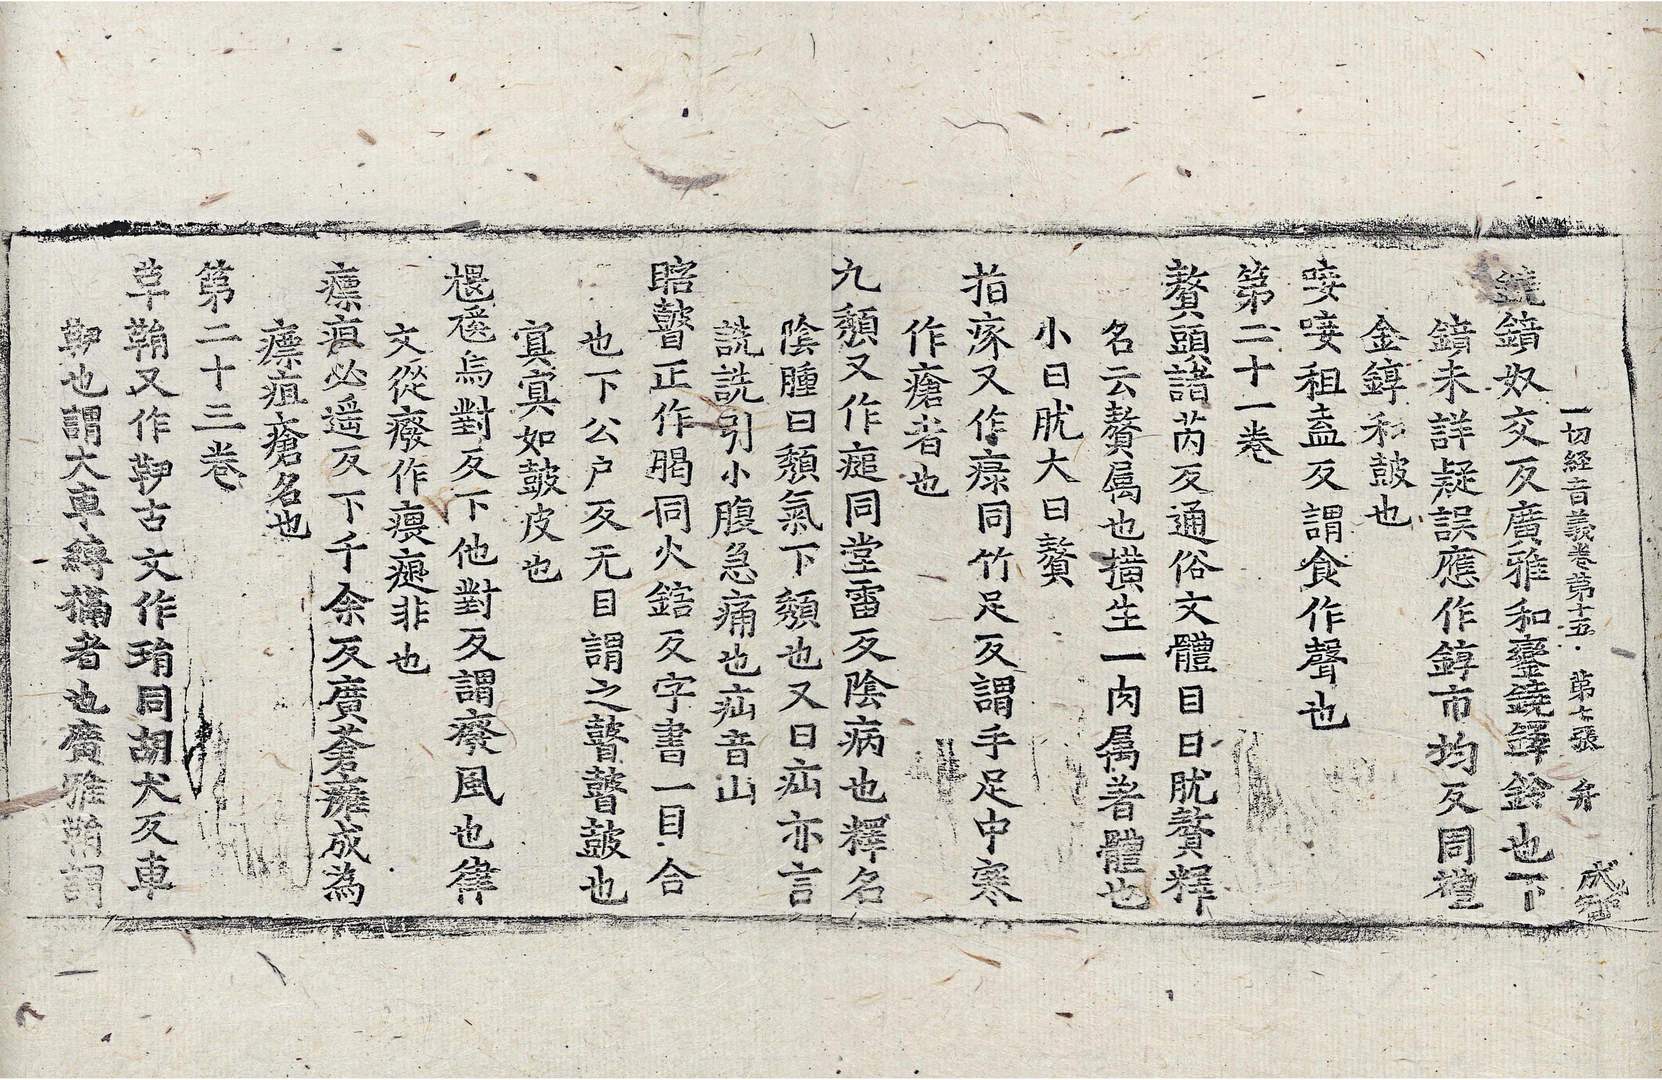 一切經音義卷第十五 第七張 弁
成智
鐃錇奴交反廣雅和鑾鐃鐸鈴也下
錇未詳疑誤應作錞市均反同禮
金錞和皷也
唼唼租盍反謂食作聲也
第二十一卷
贅頭諸芮反通俗文體目曰肬贅釋
名云贅属也横生一肉属著體也
小曰肬大曰贅
指瘃又作瘃同竹足反謂手足中寒
作瘡者也
九頹又作㿉同堂雷反陰病也釋名
陰腫曰頹氣下頹也又曰疝亦言
詵詵引小腹急痛也疝音山
瞎瞽正作䀣同火鎋反字書一目合
也下公户反无目謂之瞽瞽皷也
寘寘如皷皮也
㾯㾽烏對反下他對反謂癈風也律
文從癈作㾯㾽非也
瘭疽必遥反下千余反廣蒼癰成為
瘭疽瘡名也
第二十三卷
草鞘又作䩬古文作琑同胡犬反車
䩬也謂大車縛㭘者也廣雅鞘謂